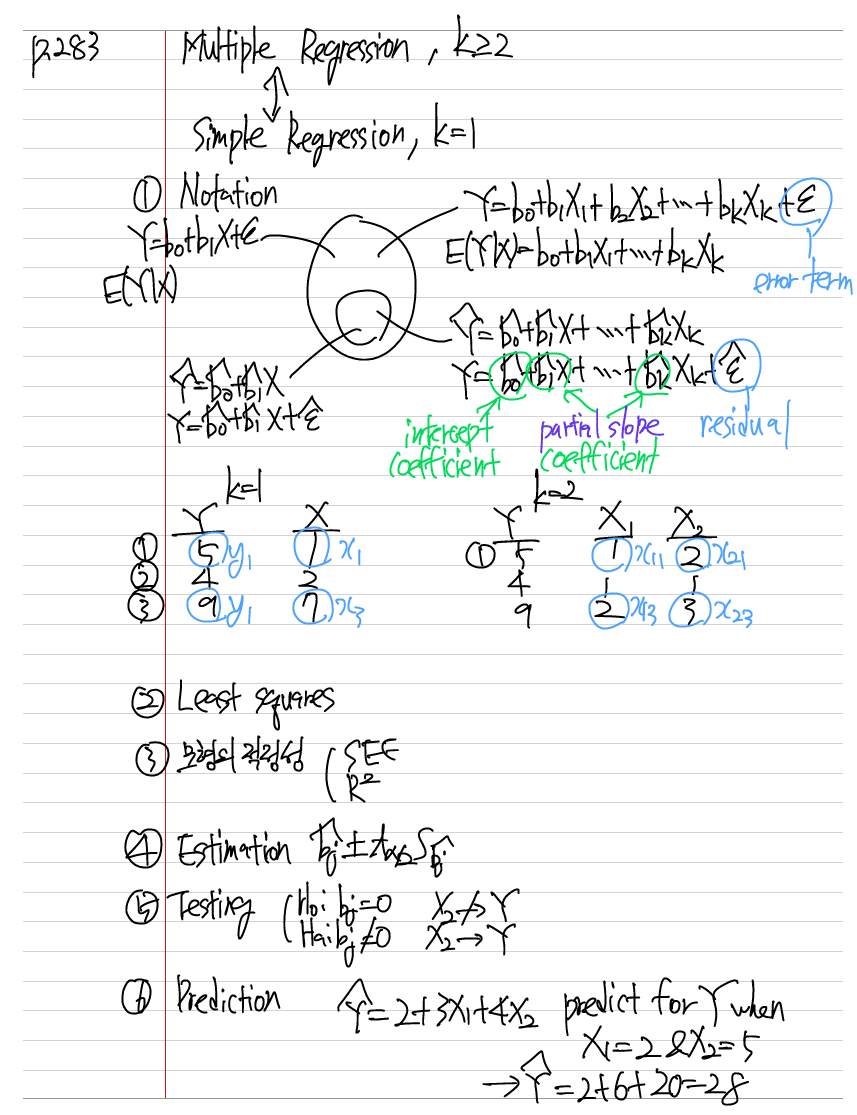 p.283 Multiple Regression, k≥2
↕
Simple Regression, k=1
① Notation
Y=b₀+b₁X+ε
E(Y|X)
Y=b₀+b₁X₁+b₂X₂+…+bₖXₖ+ε
E(Y|X)=b₀+b₁X₁+…+bₖXₖ
error term
Ŷ=b̂₀+b̂₁X+…+b̂ₖXₖ
Y=b̂₀+b̂₁X+…+b̂ₖXₖ+ε̂
Ŷ=b̂₀+b̂₁X
Y=b̂₀+b̂₁X+ε̂
intercept coefficient
partial slope coefficient
residual
k=1
Y X
① 5 y₁ 1 x₁
② 4 2
③ 9 y₁ 7 x₃
k=2
Y X₁ X₂
① 5 1 x₁₁ 2 x₂₁
4 1 1
9 2 x₁₃ 3 x₂₃
② Least squares
③ 모형의 적정성 ( SEE
R²
④ Estimation b̂ⱼ ± t_α/₂ S_b̂ⱼ
⑤ Testing ( H₀: bⱼ=0 X₂↛Y
Ha: bⱼ≠0 X₂→Y
⑥ Prediction Ŷ=2+3X₁+4X₂ predict for Y when
X₁=2 & X₂=5
→ Ŷ=2+6+20=28